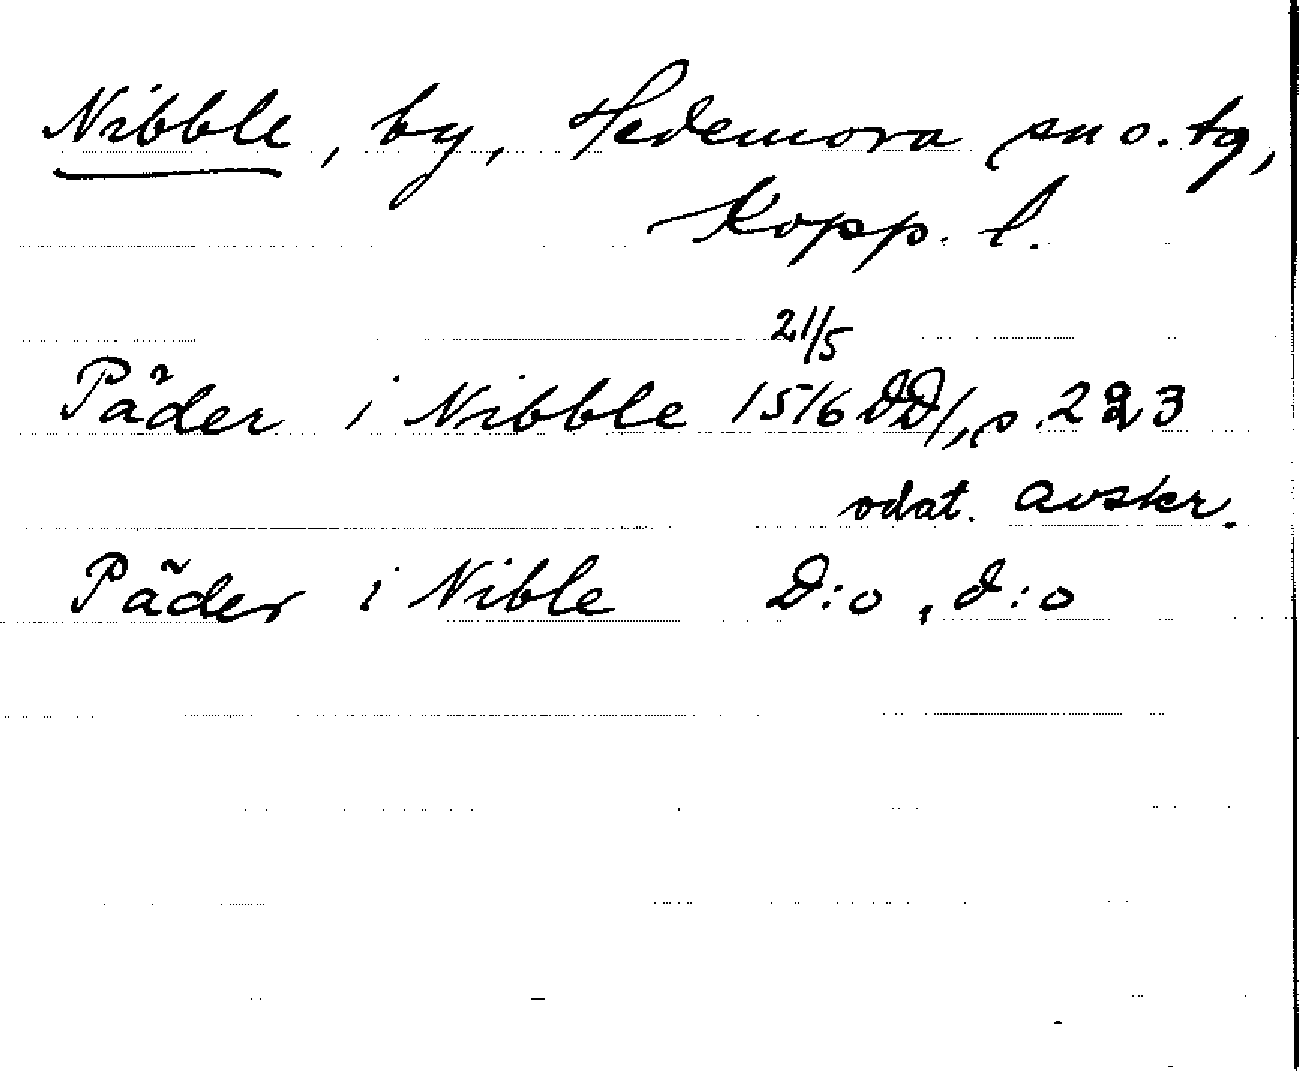 Nibble, by, Hedemora sn o. tg,
Kopp. l.
21/5
Päder i Nibble 1516 DD/, s. 223
odat. avskr.
Päder i Nible D:o, d:o